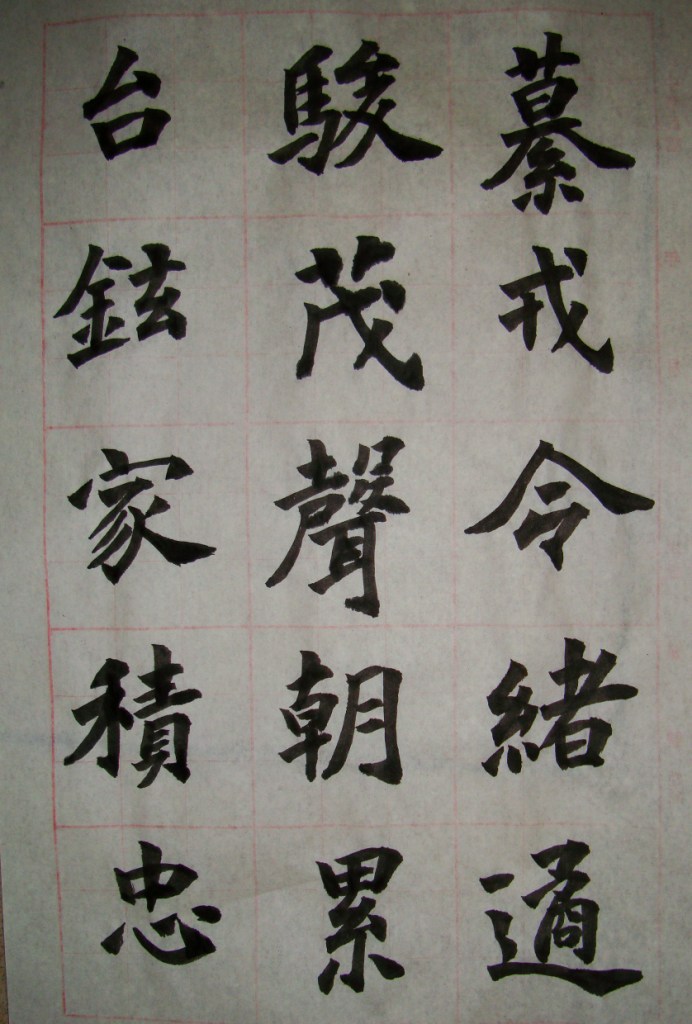 纂戎令緒遹
駿茂聲朝累
台鉉家積忠